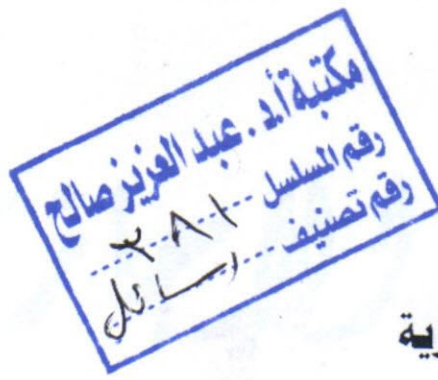 مكتبة أ.د. عبد العزيز صالح
رقم المسلسل ٣٨١
رقم تصنيف رسائل
رية